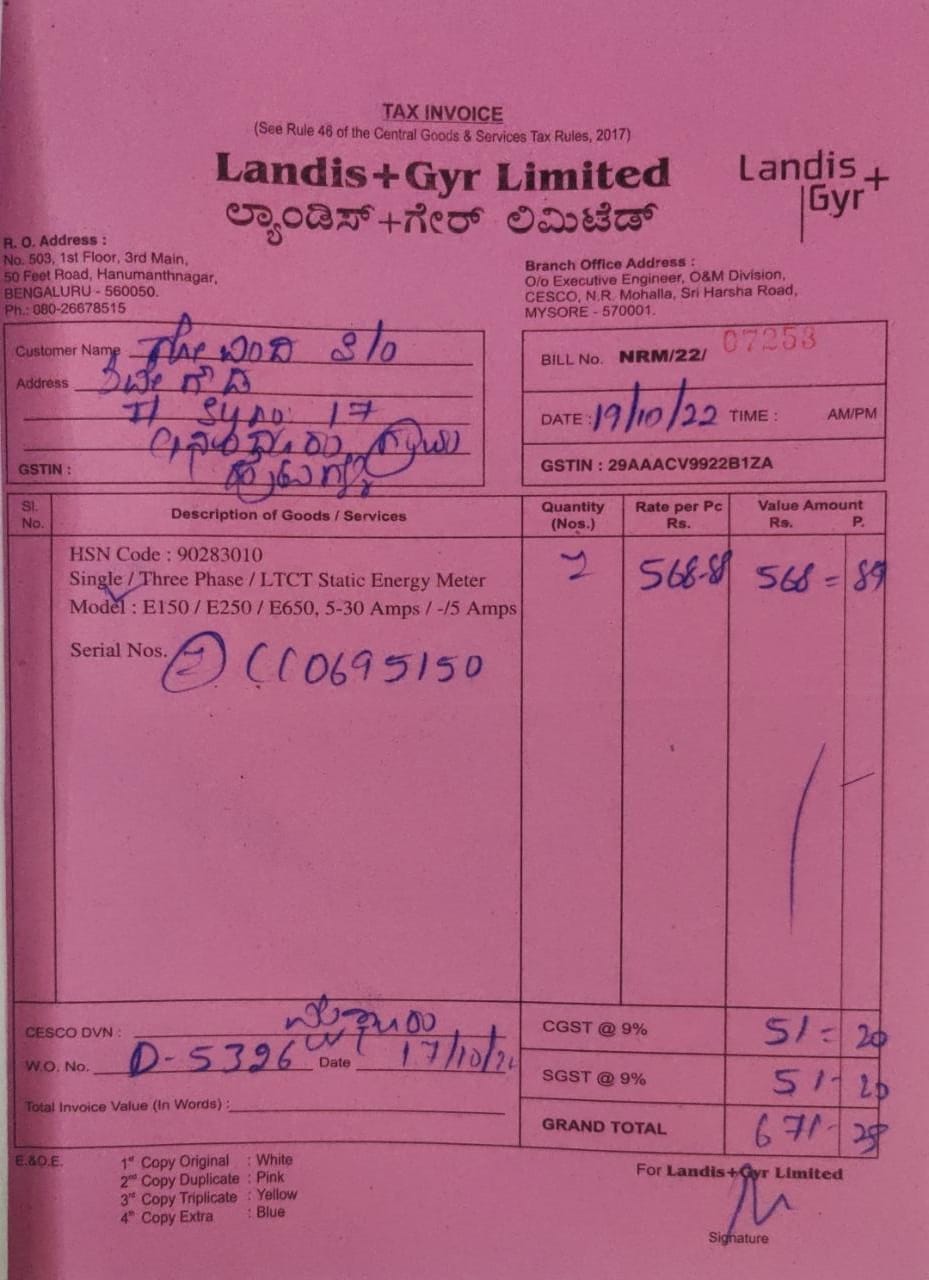 TAX INVOICE
(See Rule 46 of the Central Goods & Services Tax Rules, 2017)
Landis+Gyr Limited
Landis+
Gyr
ಲ್ಯಾಂಡಿಸ್+ಗೇರ್ ಲಿಮಿಟೆಡ್
R. O. Address :
No. 503, 1st Floor, 3rd Main,
50 Feet Road, Hanumanthnagar,
BENGALURU - 560050.
Ph.: 080-26678515
Branch Office Address :
O/o Executive Engineer, O&M Division,
CESCO, N.R. Mohalla, Sri Harsha Road,
MYSORE - 570001.
Customer Name S/o
Address
Sy no: 17
GSTIN :
BILL No. NRM/22/ 07253
DATE : 19/10/22 TIME : AM/PM
GSTIN : 29AAACV9922B1ZA
Sl. No. Description of Goods / Services Quantity (Nos.) Rate per Pc Rs. Value Amount Rs. P.
HSN Code : 90283010
Single / Three Phase / LTCT Static Energy Meter 568-8 568 = 89
Model : E150 / E250 / E650, 5-30 Amps / -/5 Amps
Serial Nos. CC0695150
CESCO DVN :
W.O. No. D-5326 Date 17/10/2
Total Invoice Value (In Words) :
CGST @ 9% 51 = 20
SGST @ 9% 51 - 20
GRAND TOTAL 671 -
E.&O.E.
1st Copy Original : White
2nd Copy Duplicate : Pink
3rd Copy Triplicate : Yellow
4th Copy Extra : Blue
For Landis+Gyr Limited
Signature